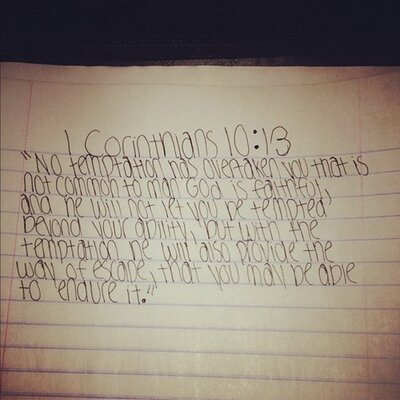 1 Corinthians 10:13
"No temptation has overtaken you that is
not common to man God is faithful,
and he will not let you be tempted
beyond your ability, but with the
temptation he will also provide the
way of escape, that you may be able
to endure it."